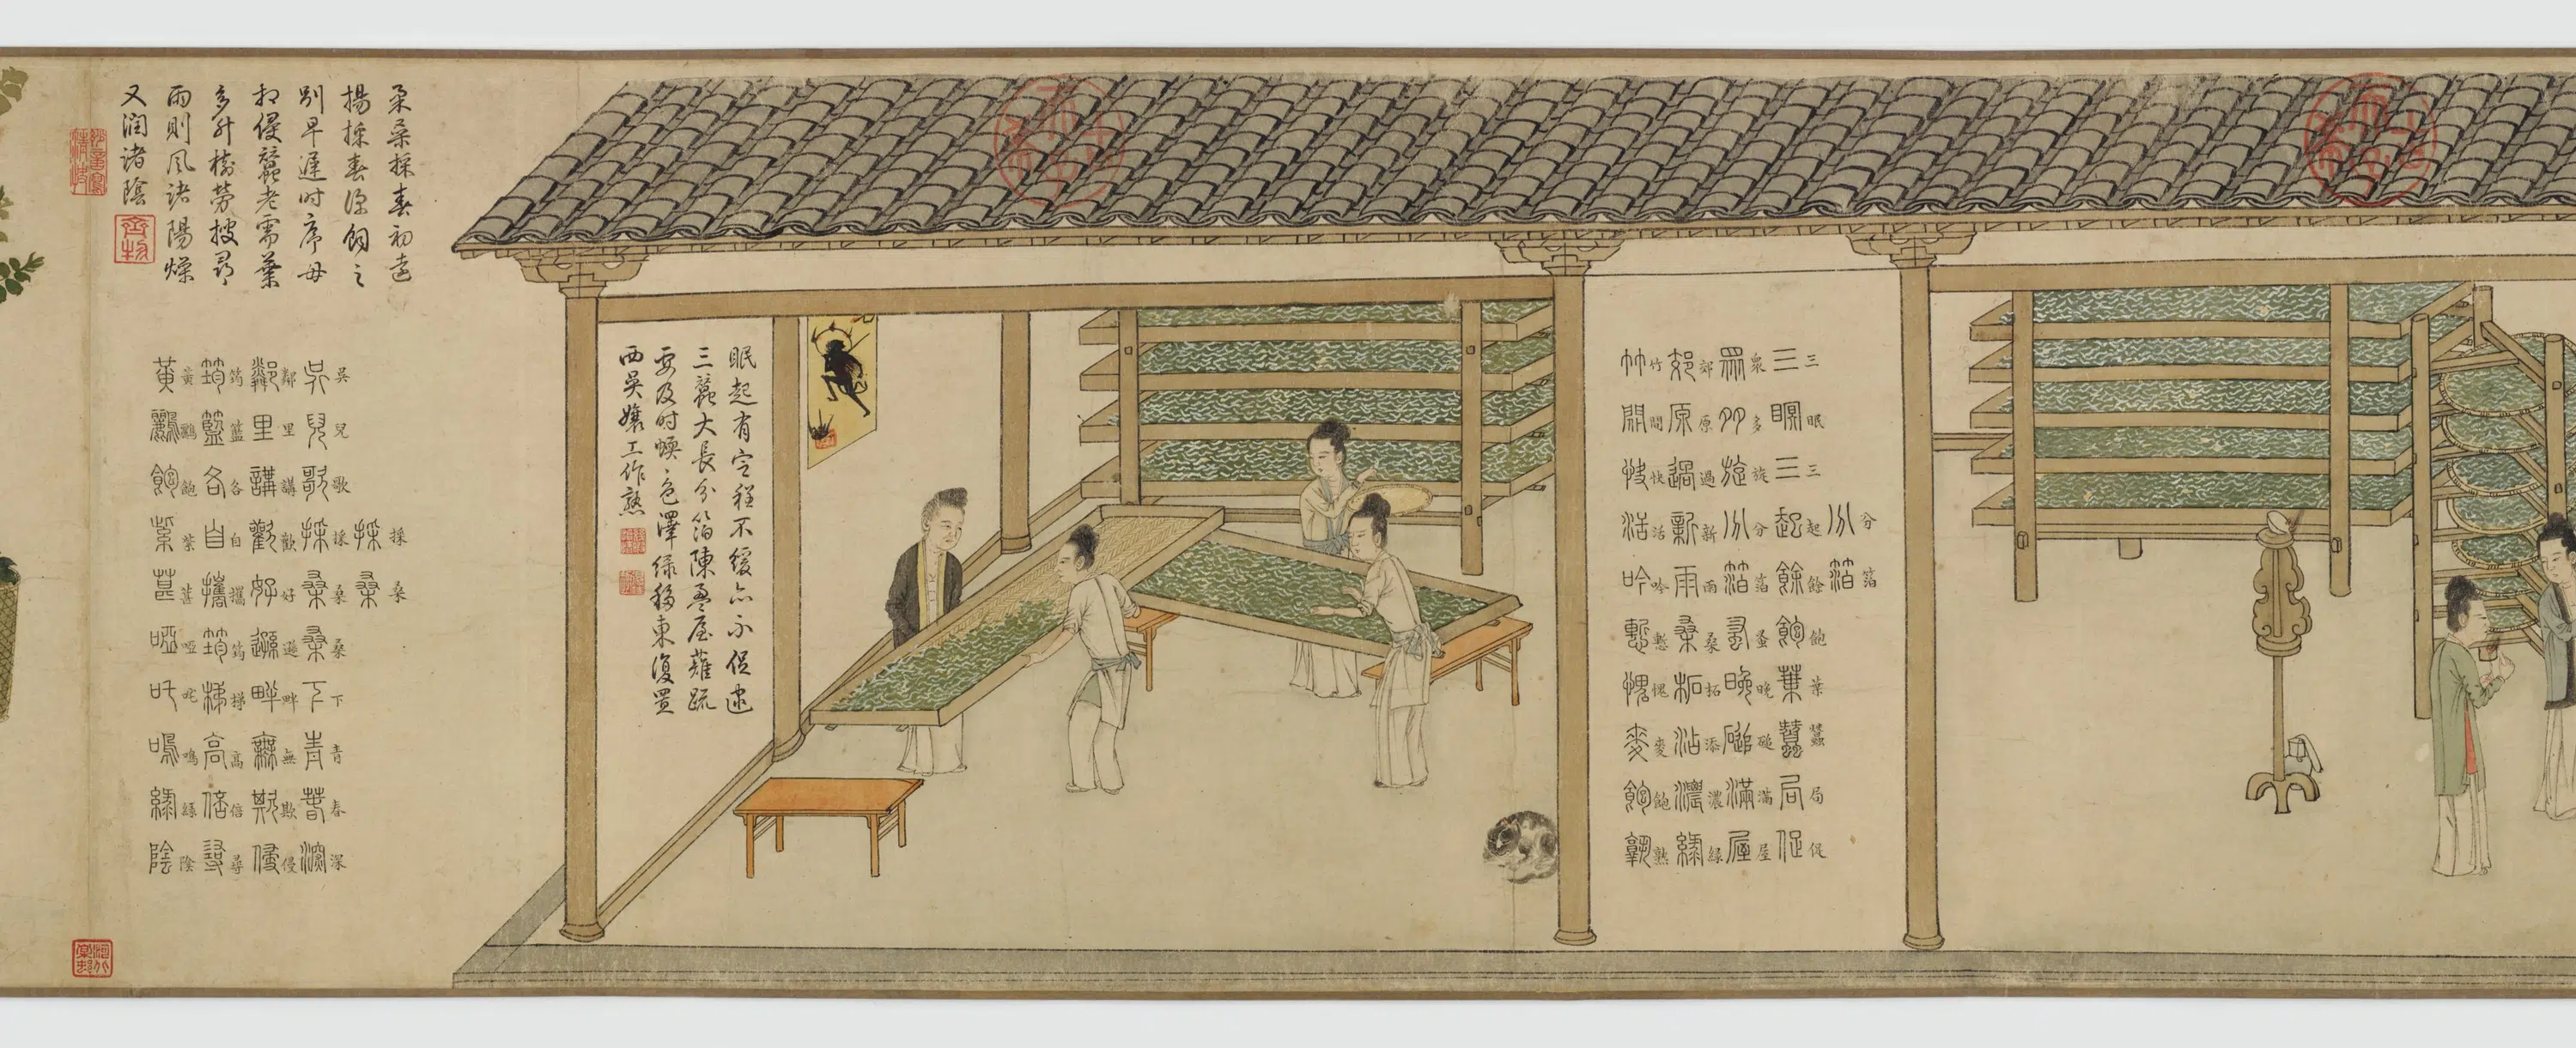 分箔
三眠三起餘飽葉蠶局促
衆多旋分箔蚤晚磓滿屋
郊原過新雨桑柘添濃綠
竹間快活吟慙愧麥飽熟
眠起有定程不緩亦不促逮
三蠶大長分箔陳盈屋薙疏
要及時蝡〻色澤綠移東復置
西吳孃工作熟
柔桑採春初遠
揚採春深飼之
別早遲時序毋
相侵蠶老需葉
多升樹勞搜尋
雨則風諸陽燥
又潤諸陰
採桑
吳兒歌採桑桑下青春深
鄰里講歡好遜畔無欺侵
筠籃各自攜筠梯高倍尋
黃鸝飽紫葚啞咤鳴綠陰